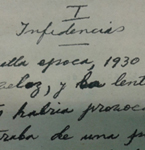 I
Infidencias
ella epoca, 1930
beloz, y la lent
habria provoca
traba de una